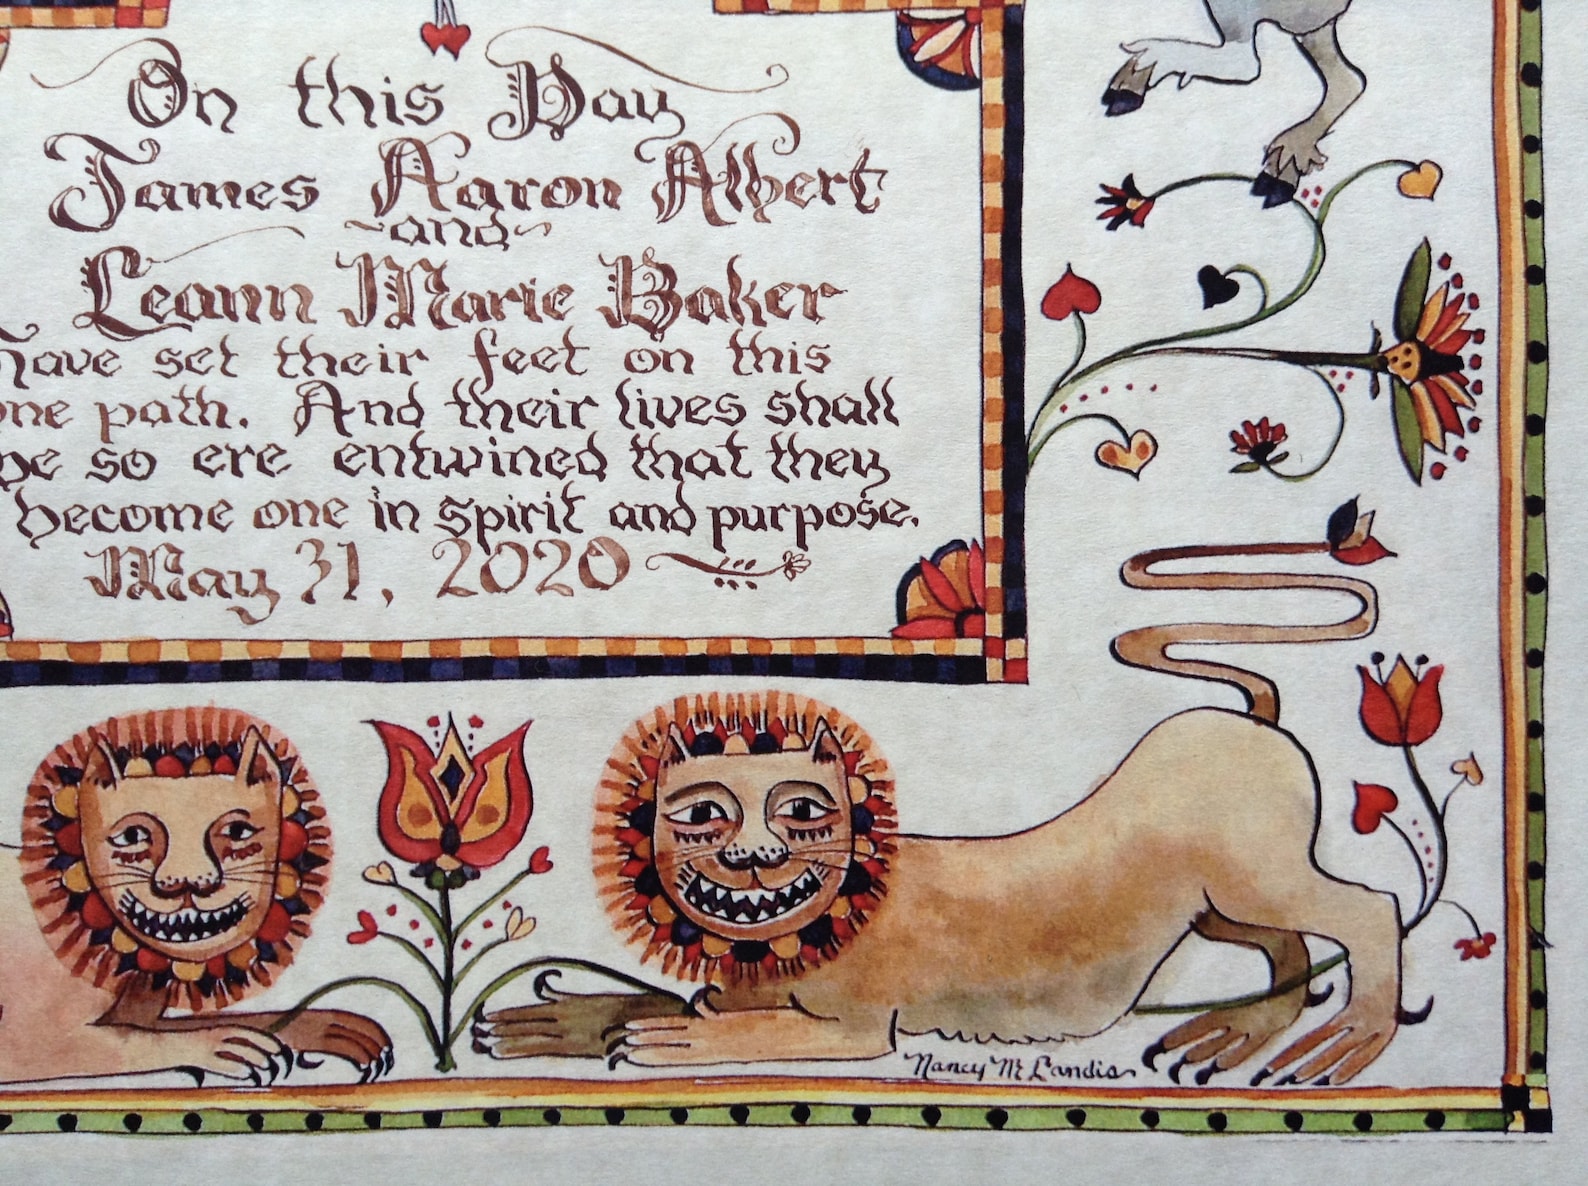 On this Day
James Aaron Albert
~and~
Leann Marie Baker
have set their feet on this
one path. And their lives shall
be so ere entwined that they
become one in spirit and purpose.
May 31, 2020
Nancy M Landis